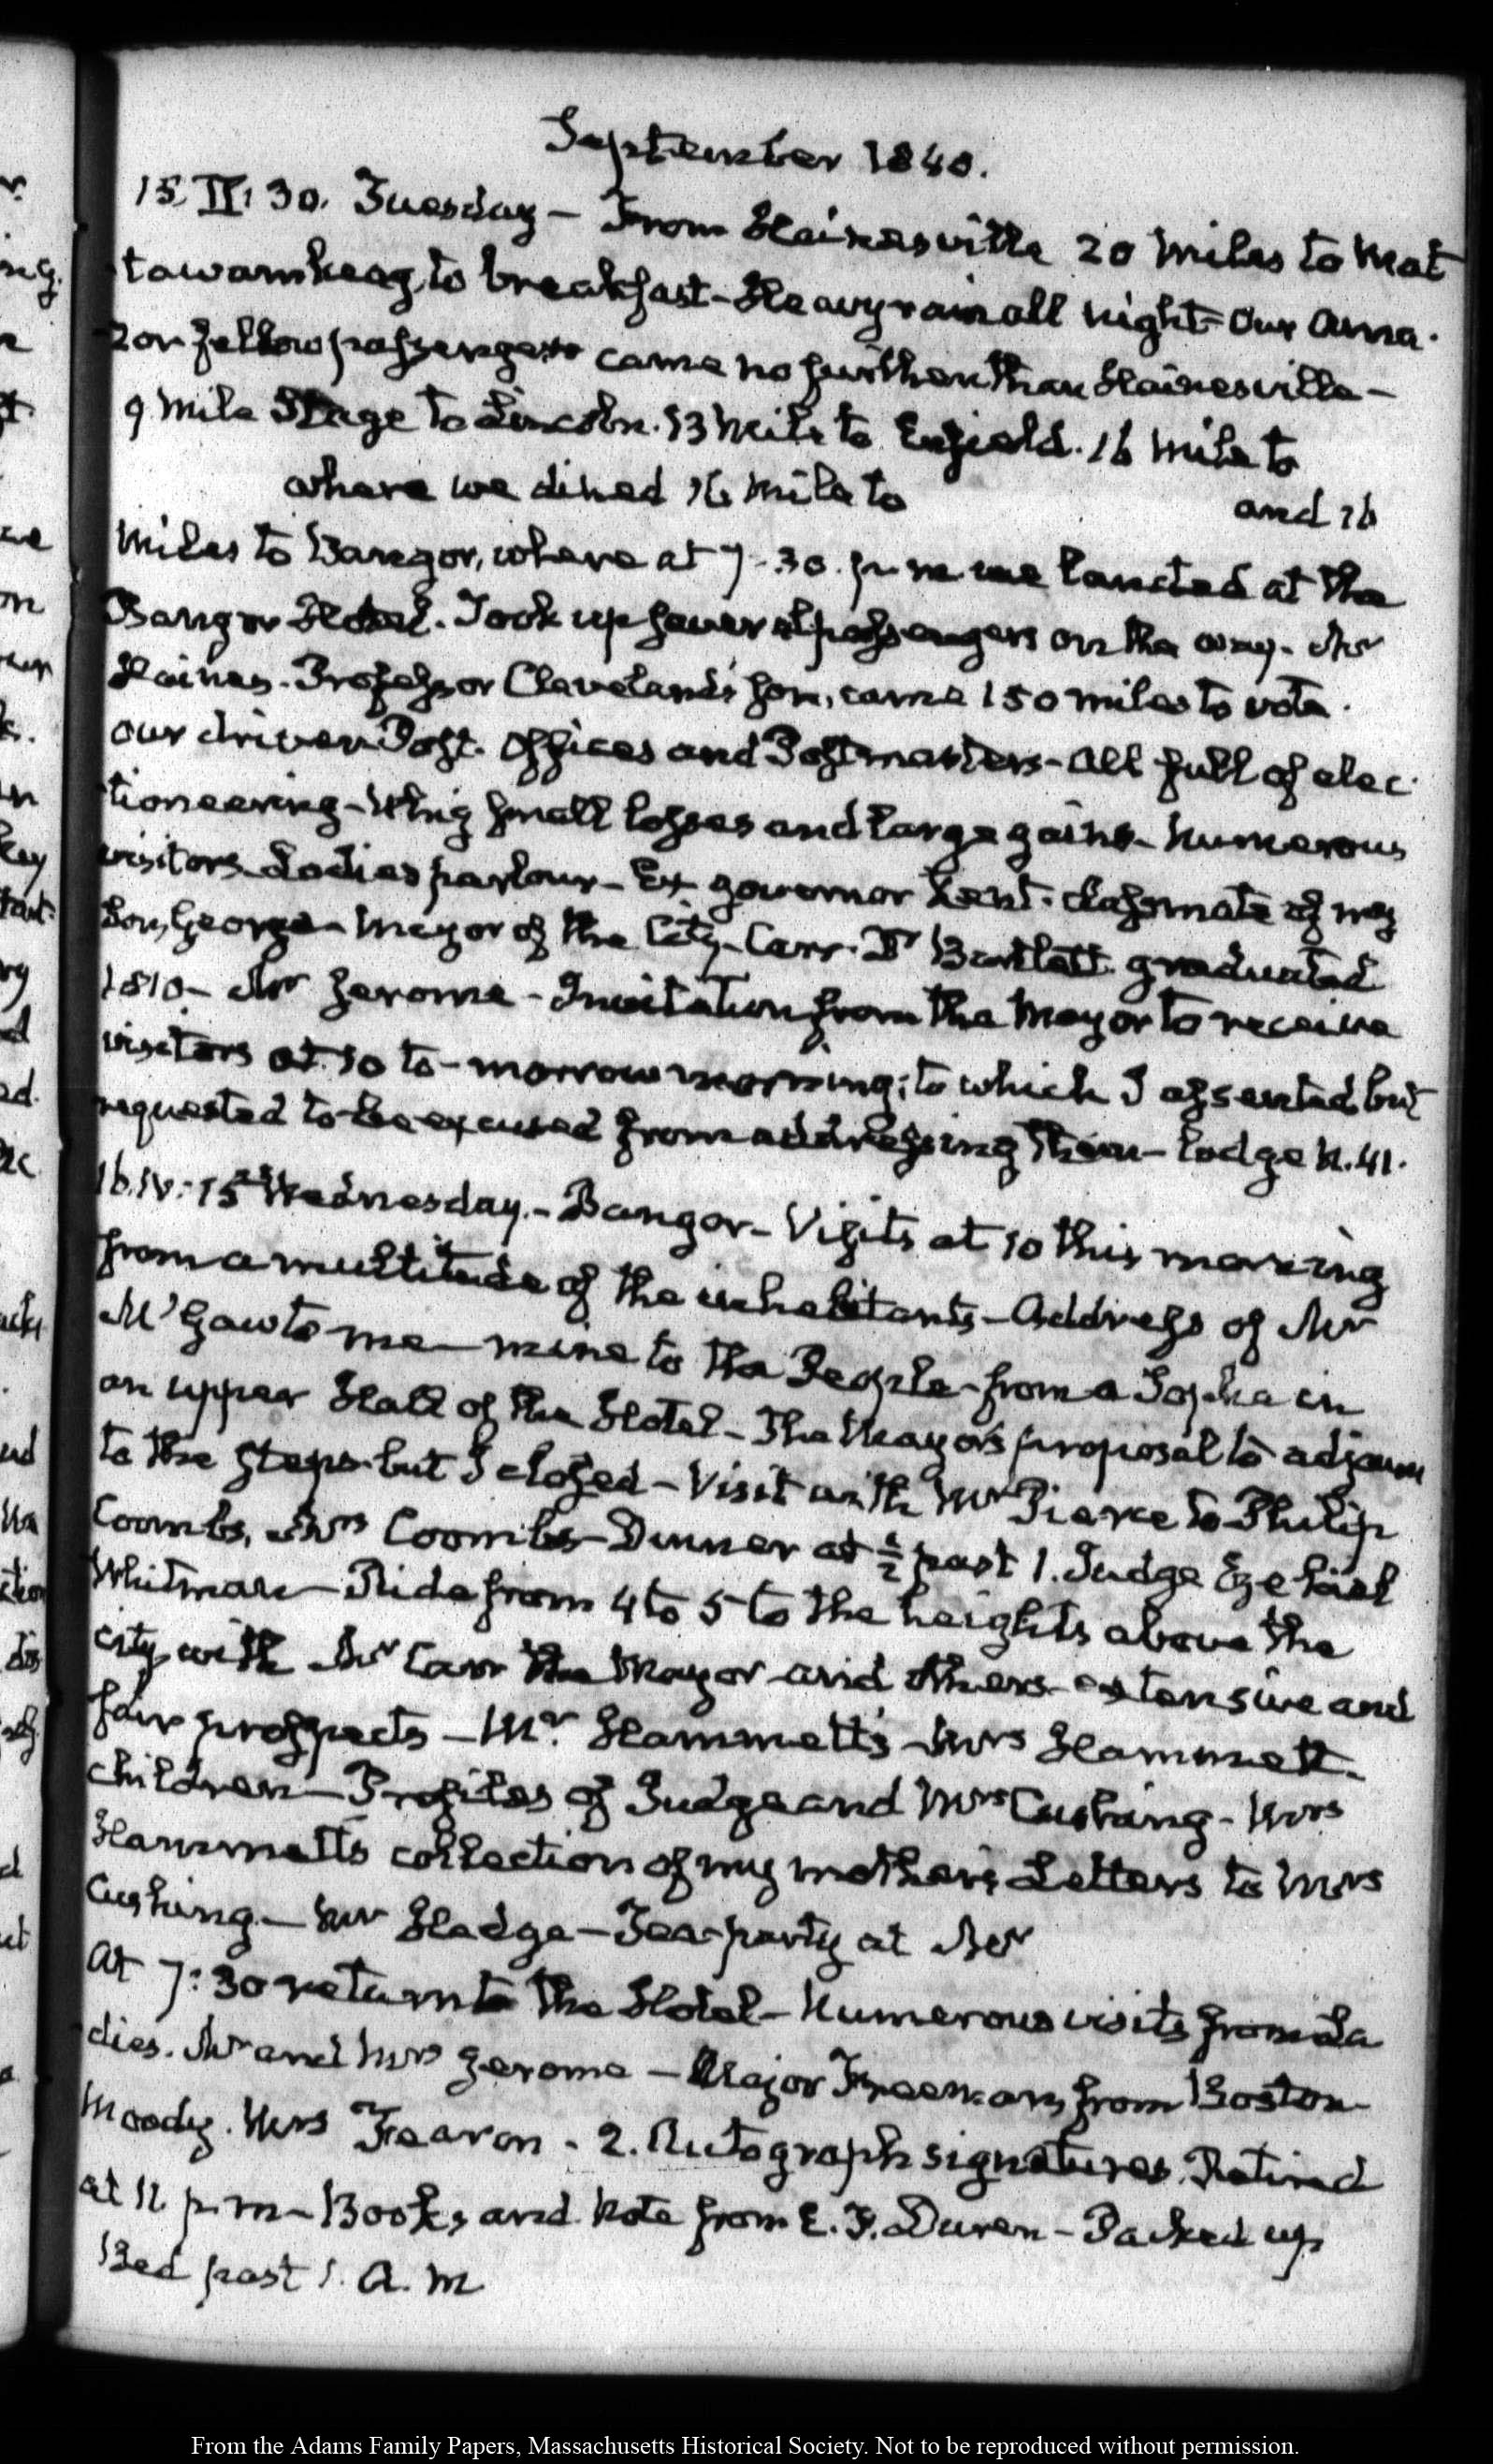 September 1840.
15. II:30. Tuesday – From Hainesville 20 Miles to Mat
tawamkeag, to breakfast – Heavy rain all night – Our Ama-
zon fellow passenger came no further than Hainesville –
9 Mile Stage to Lincoln. 13 Mile to Enfield. 16 Mile to
where we dined 16 Mile to and 16
Miles to Bangor, where at 7-30. p.m. we landed at the
Bangor Hotel. Took up several passengers on the way – Mr
Haines – Professor Cleveland's son, came 150 miles to vote.
our driver Post-Offices and Postmasters – All full of elec-
tioneering – Whig small losses and large gains – Numerous
visitors Ladies parlour – Ex governor Kent. classmate of my
Son, George – Mayor of the City – Carr. Dr Bartlett graduated
1810 – Mr Jerome – Invitation from the Mayor to receive
visitors at 10 to-morrow morning; to which I assented but
requested to be excused from addressing them – Lodge N. 41.
16. IV:15 Wednesday. – Bangor – Visits at 10 this morning
from a multitude of the inhabitants – Address of Mr
McGaw to me – mine to the People – from a Sopha in
an upper Hall of the Hotel – The Mayor's proposal to adjourn
to the steps – but I closed – Visit with Mr Pierce to Philip
Coombs, Mrs Coombs – Dinner at ½ past 1. Judge Ezekiel
Whitman – Ride from 4 to 5 to the heights above the
city, with Mr Carr the Mayor and others – extensive and
fair prospects – Mr. Hammett's – Mrs Hammett.
children – Profiles of Judge and Mrs Cushing – Mrs
Hammett's collection of my mother's Letters to Mrs
Cushing – Mr Hedge – Tea-party at Mr
At 7:30 return to the Hotel – Numerous visits from La
dies. Mr and Mrs Jerome – Major Freeman, from Boston –
Moody. Mrs Fearon – 2. Autograph signatures. Retired
at 11 p.m – Books and Note from E. F. Duren – Packed up
Bed past 1. A. M
From the Adams Family Papers, Massachusetts Historical Society. Not to be reproduced without permission.